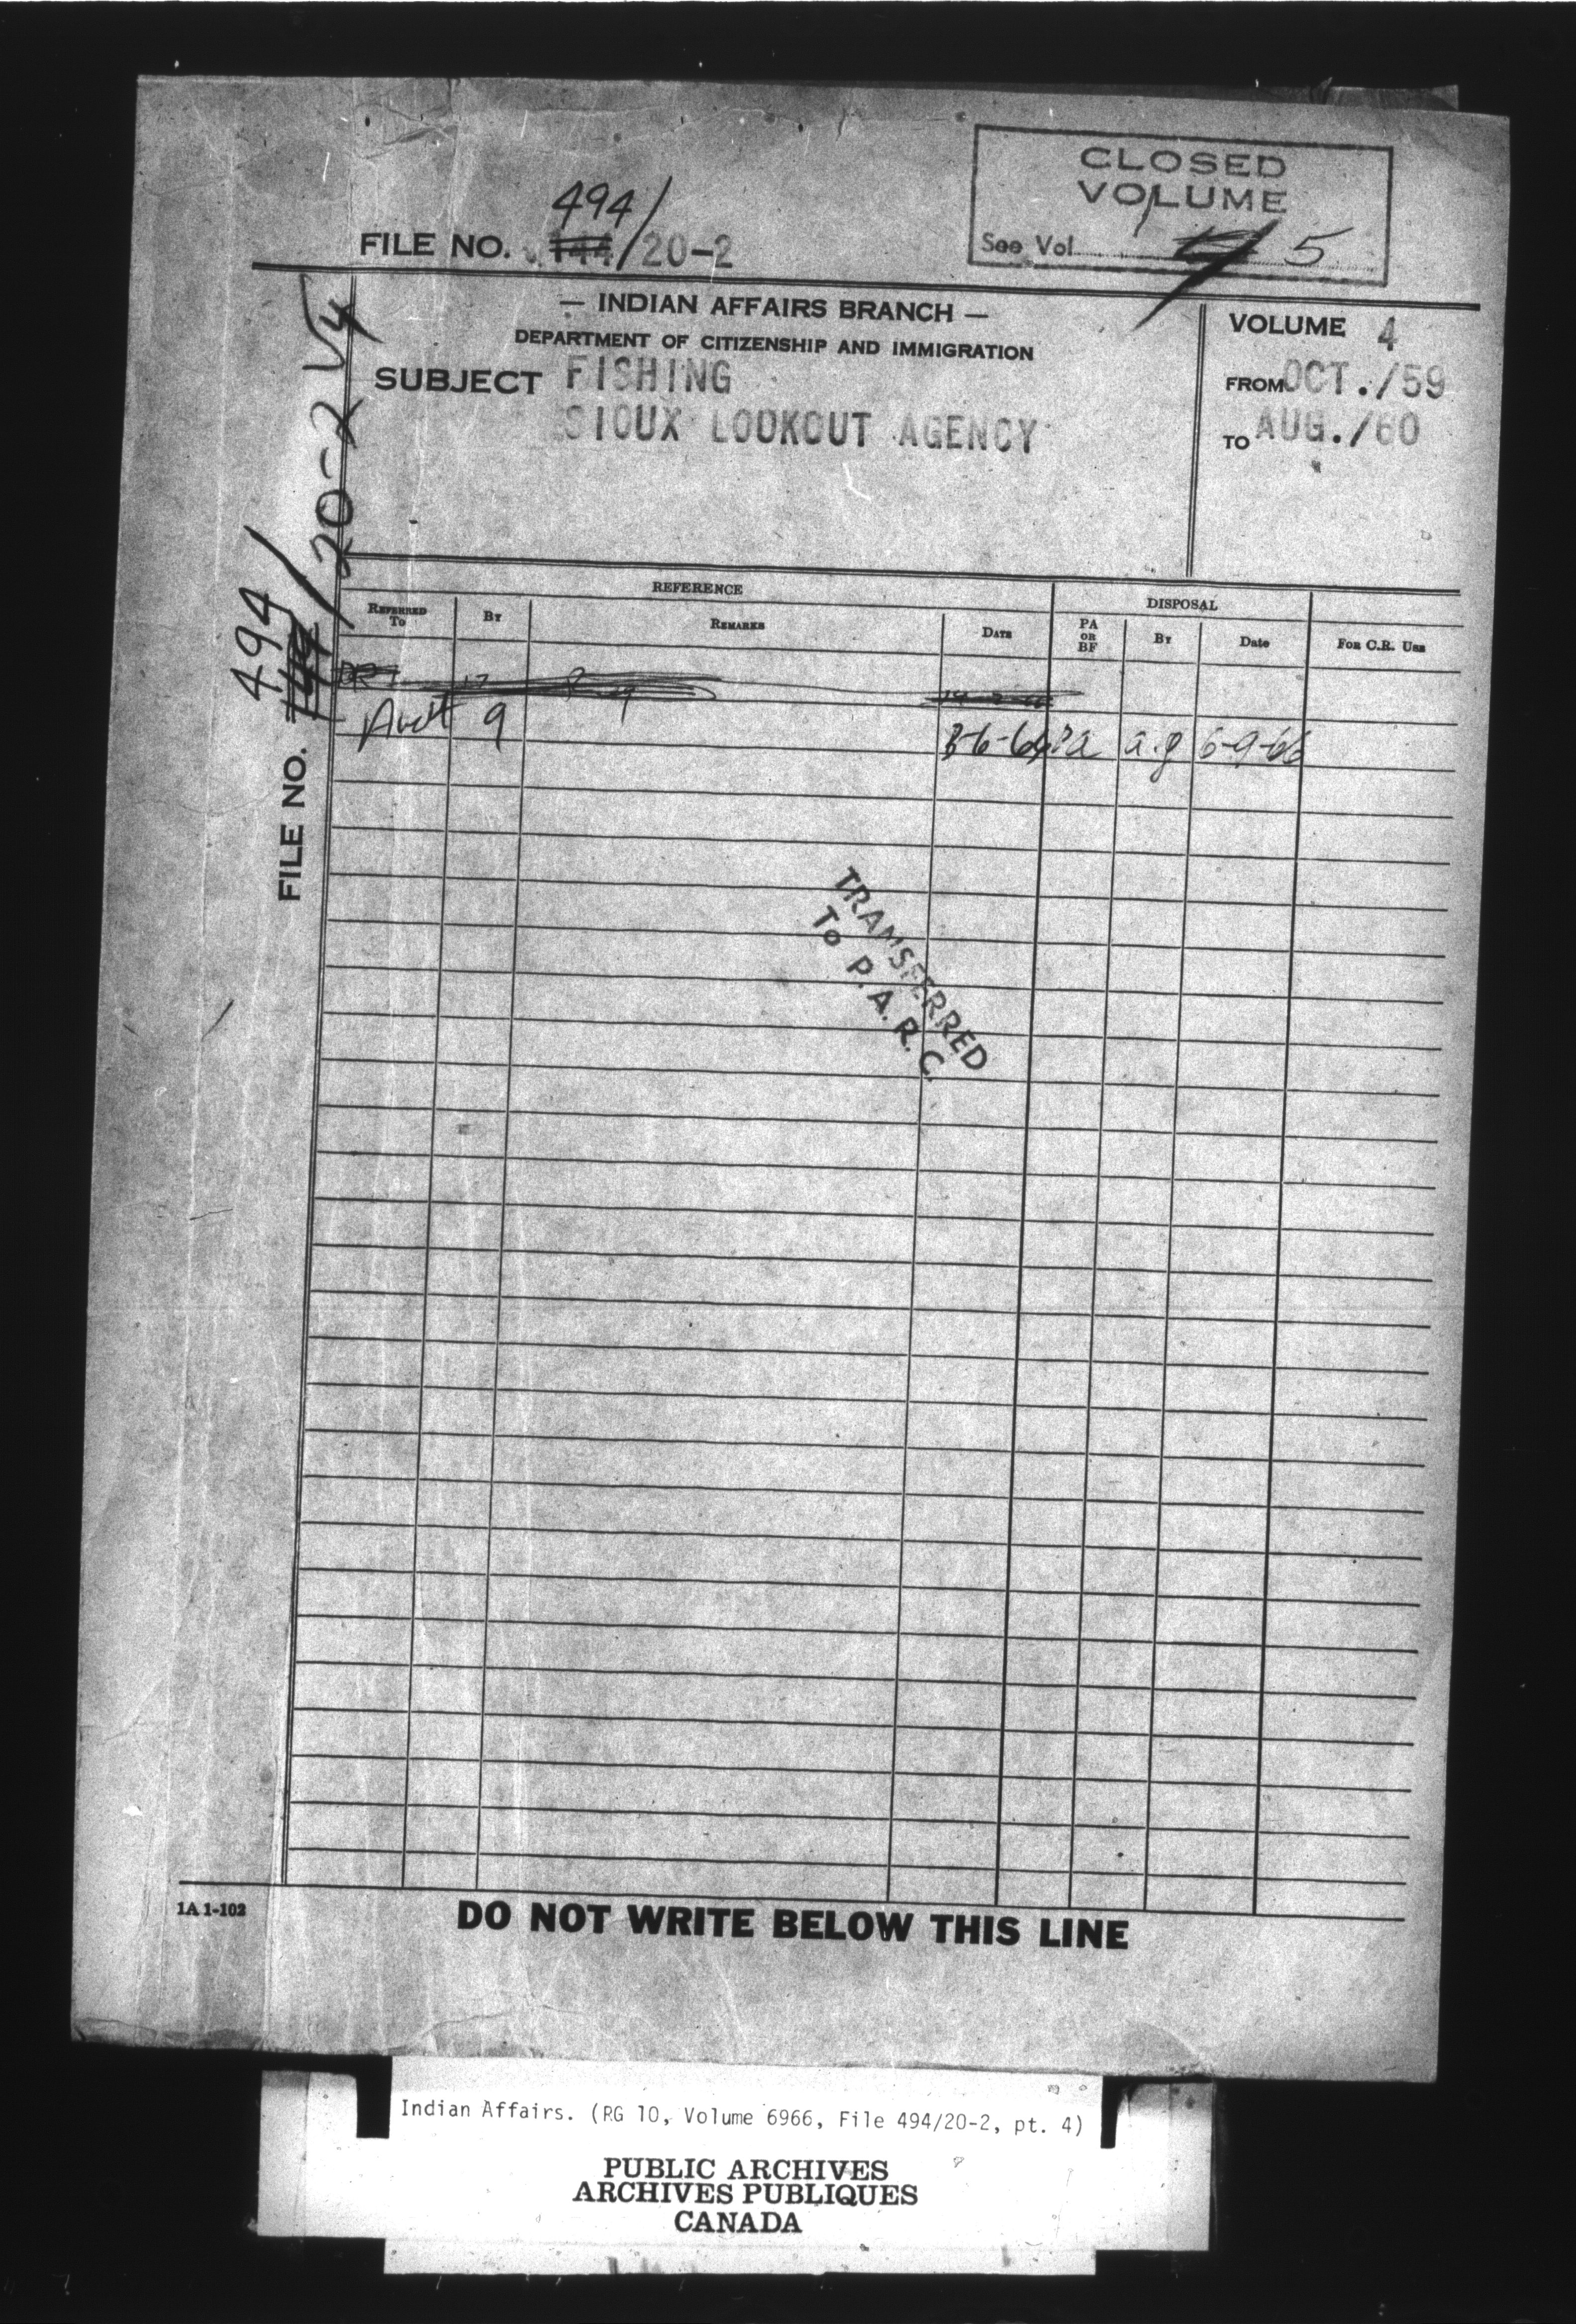 CLOSED
VOLUME
See Vol. 5
494/
FILE NO. 144/20-2
— INDIAN AFFAIRS BRANCH —
DEPARTMENT OF CITIZENSHIP AND IMMIGRATION
SUBJECT FISHING
SIOUX LOOKOUT AGENCY
VOLUME 4
FROM OCT./59
TO AUG./60
FILE NO. 494/20-2 V4
REFERENCE
DISPOSAL
REFERRED TO
BY
REMARKS
DATE
PA OR BF
BY
Date
FOR C.R. USE
9 3-6-66 Pa a.g 6-9-66
TRANSFERRED
To P.A.R.C.
1A 1-102
DO NOT WRITE BELOW THIS LINE
Indian Affairs. (RG 10, Volume 6966, File 494/20-2, pt. 4)
PUBLIC ARCHIVES
ARCHIVES PUBLIQUES
CANADA